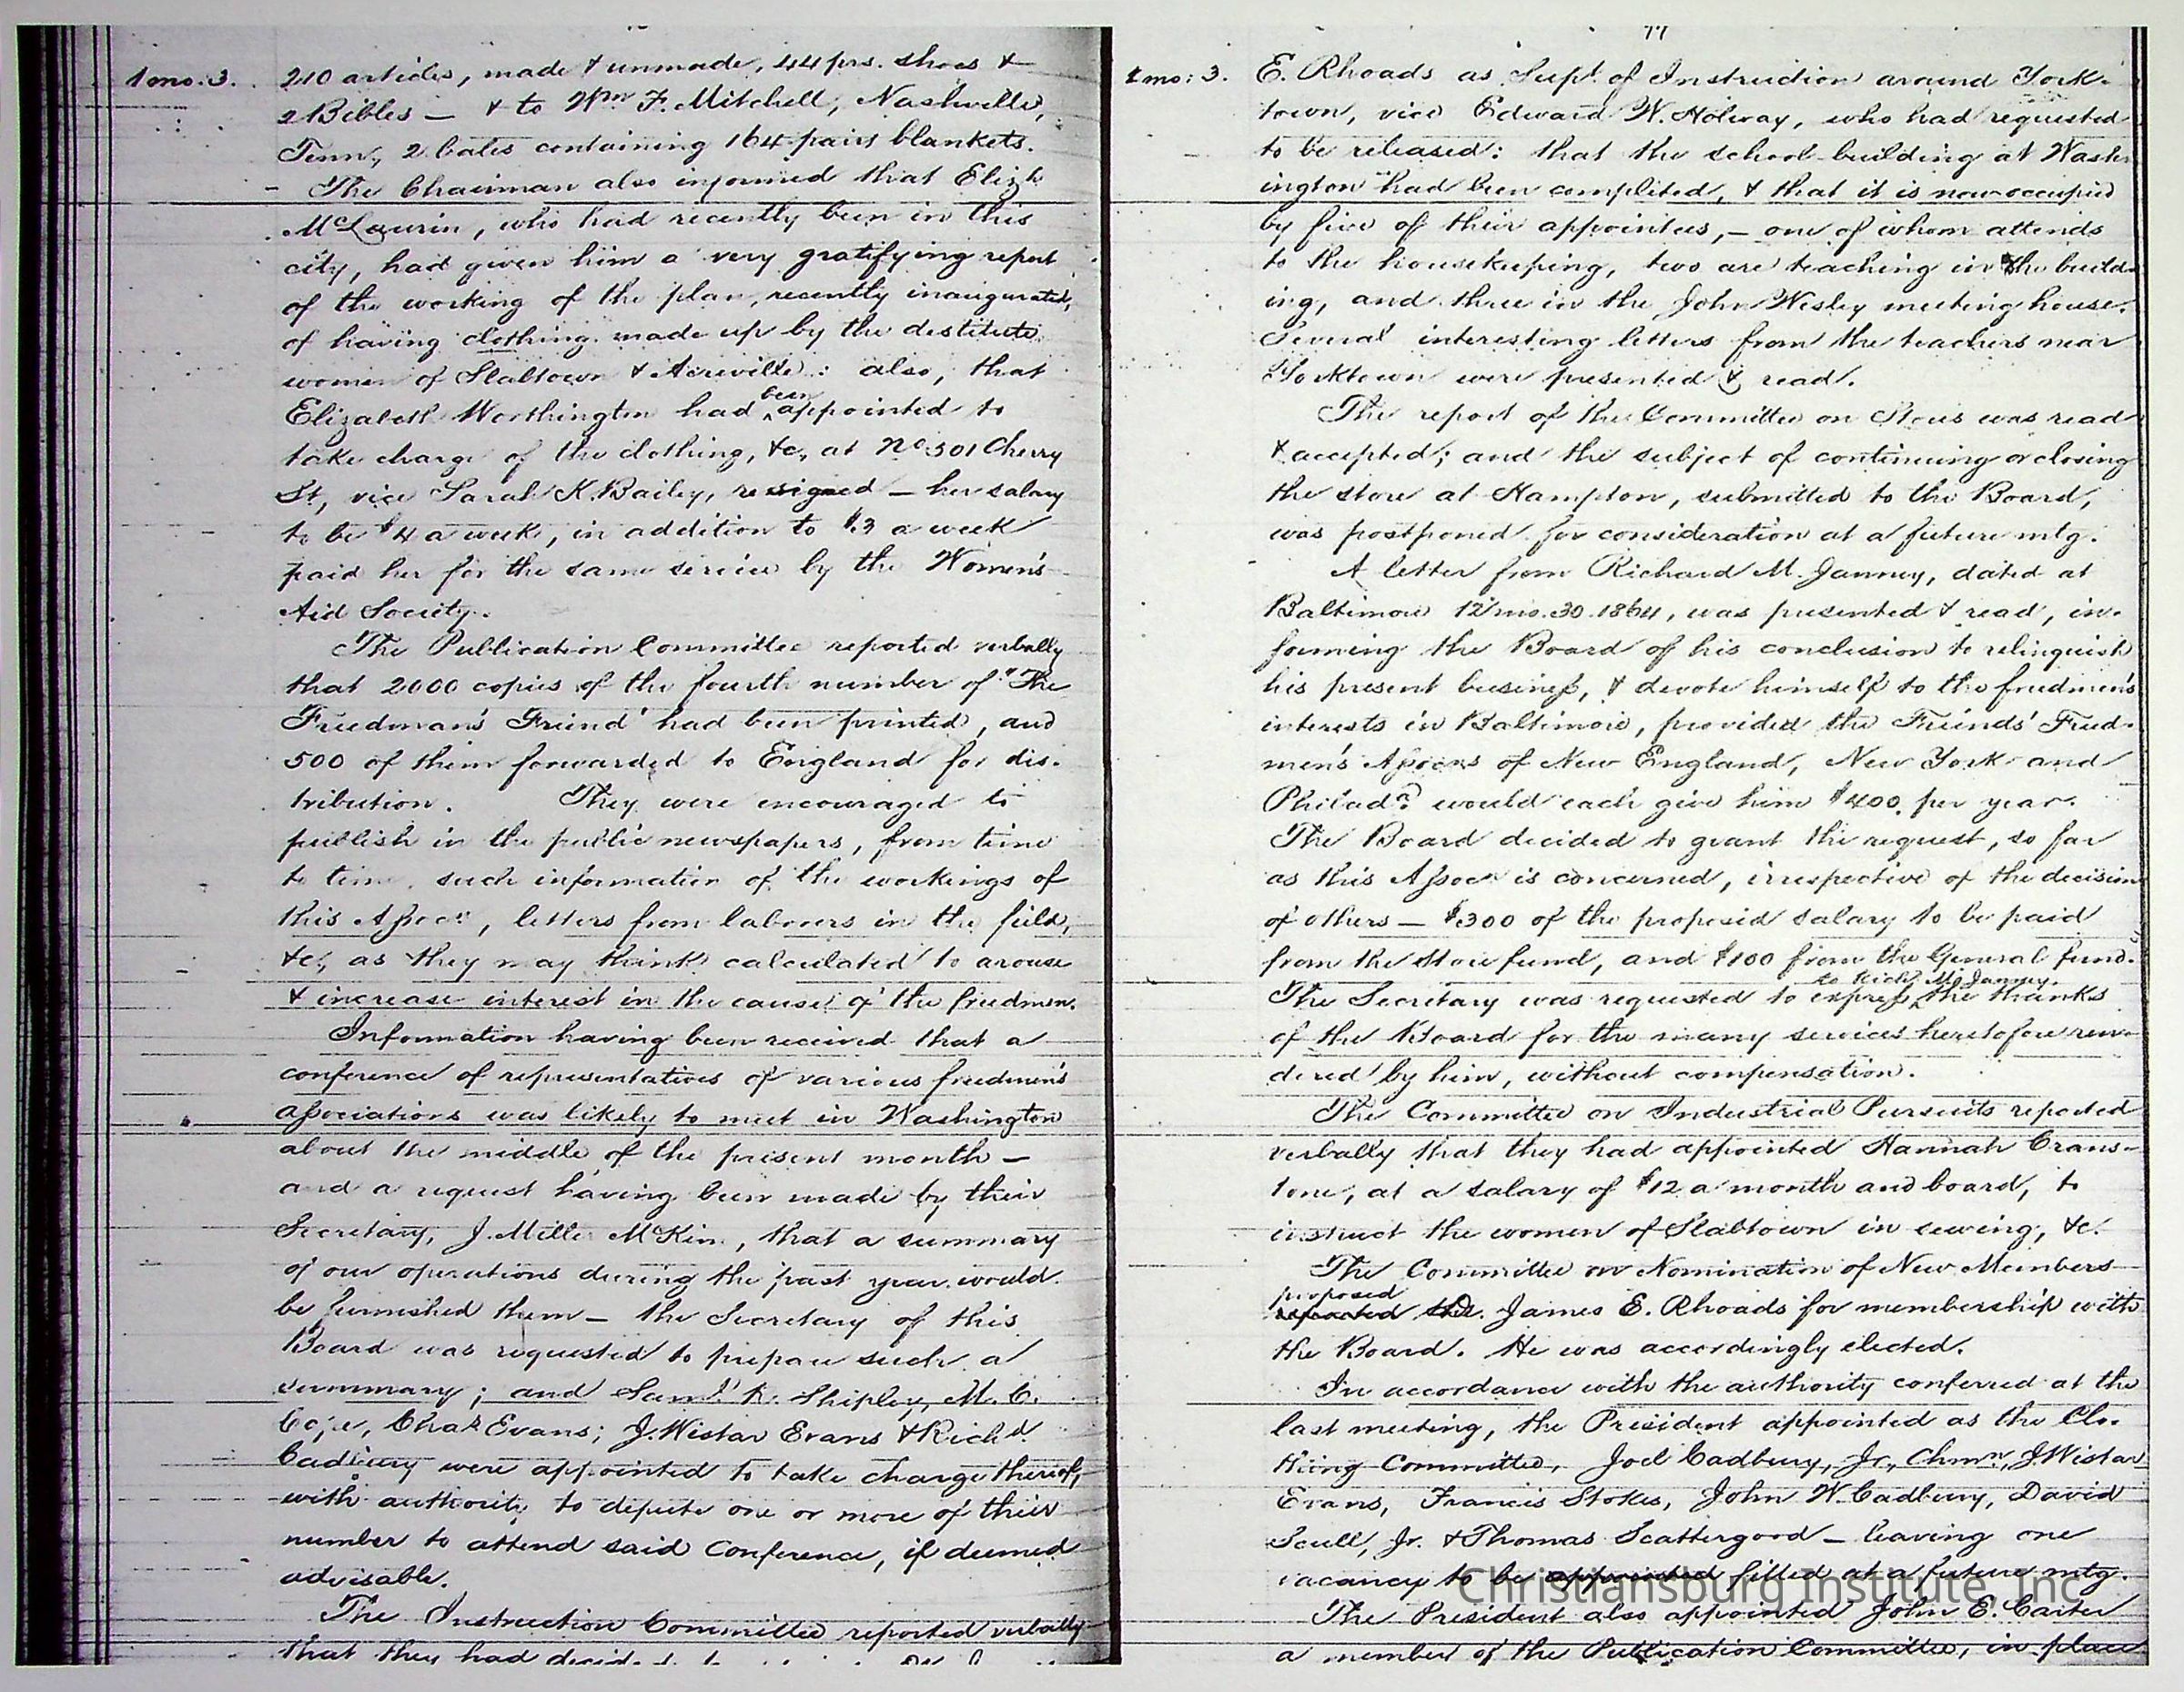 1 mo: 3.
210 articles, made & unmade, 44 prs. shoes &
2 Bibles — & to Wm F. Mitchell, Nashville,
Tenn, 2 bales containing 164 pairs blankets.
The Chairman also informed that Elizh
McLaurin, who had recently been in this
city, had given him a very gratifying report
of the working of the plan, recently inaugurated,
of having clothing made up by the destitute
women of Slabtown & Acreville: also, that
been
Elizabeth Worthington had appointed to
take charge of the clothing, &c, at No 501 Cherry
St, vice Sarah K. Bailey, resigned — her salary
to be $4 a week, in addition to $3 a week
paid her for the same service by the Women's
Aid Society.
The Publication Committee reported verbally
that 2000 copies of the fourth number of "The
Freedman's Friend" had been printed, and
500 of them forwarded to England for dis-
tribution. They were encouraged to
publish in the public newspapers, from time
to time, such information of the workings of
this Assocn, letters from laborers in the field,
&c, as they may think calculated to arouse
& increase interest in the cause of the freedmen.
Information having been received that a
conference of representatives of various freedmen's
associations was likely to meet in Washington
about the middle of the present month —
and a request having been made by their
Secretary, J. Miller McKim, that a summary
of our operations during the past year would
be furnished them — the Secretary of this
Board was requested to prepare such a
summary; and Saml R. Shipley, M. C.
Cope, Chas Evans; J. Wistar Evans & Richd
Cadbury were appointed to take charge thereof,
with authority to depute one or more of their
number to attend said Conference, if deemed
advisable.
The Instruction Committee reported verbally
that they had
77
1 mo: 3.
E. Rhoads as Supt. of Instruction around York-
town, vice Edward W. Holway, who had requested
to be released: that the school-building at Wash-
ington had been completed, & that it is now occupied
by five of their appointees, — one of whom attends
to the housekeeping, two are teaching in the build-
ing, and three in the John Wesley meeting house.
Several interesting letters from the teachers near
Yorktown were presented & read.
The report of the Committee on Stores was read
& accepted; and the subject of continuing or closing
the store at Hampton, submitted to the Board,
was postponed for consideration at a future mtg.
A letter from Richard M. Janney, dated at
Baltimore 12 mo. 30. 1864, was presented & read, in-
forming the Board of his conclusion to relinquish
his present business, & devote himself to the freedmen's
interests in Baltimore, provided the Friends' Freed-
men's Assocns of New England, New York and
Philada would each give him $400 per year.
The Board decided to grant the request, so far
as this Assocn is concerned, irrespective of the decision
of others — $300 of the proposed salary to be paid
from the store fund, and $100 from the General fund.
to Richd M. Janney.
The Secretary was requested to express the thanks
of the Board for the many services heretofore ren-
dered by him, without compensation.
The Committee on Industrial Pursuits reported
verbally that they had appointed Hannah Crans-
tone, at a salary of $12 a month and board, to
instruct the women of Slabtown in sewing, &c.
The Committee on Nomination of New Members
proposed
reported the James E. Rhoads for membership with
the Board. He was accordingly elected.
In accordance with the authority conferred at the
last meeting, the President appointed as the Clo-
thing Committee, Joel Cadbury, Jr., Chmn, J. Wistar
Evans, Francis Stokes, John W. Cadbury, David
Scull, Jr. & Thomas Scattergood — leaving one
vacancy to be appointed filled at a future mtg.
The President also appointed John E. Carter
a member of the Publication Committee, in place
Christiansburg Institute, Inc